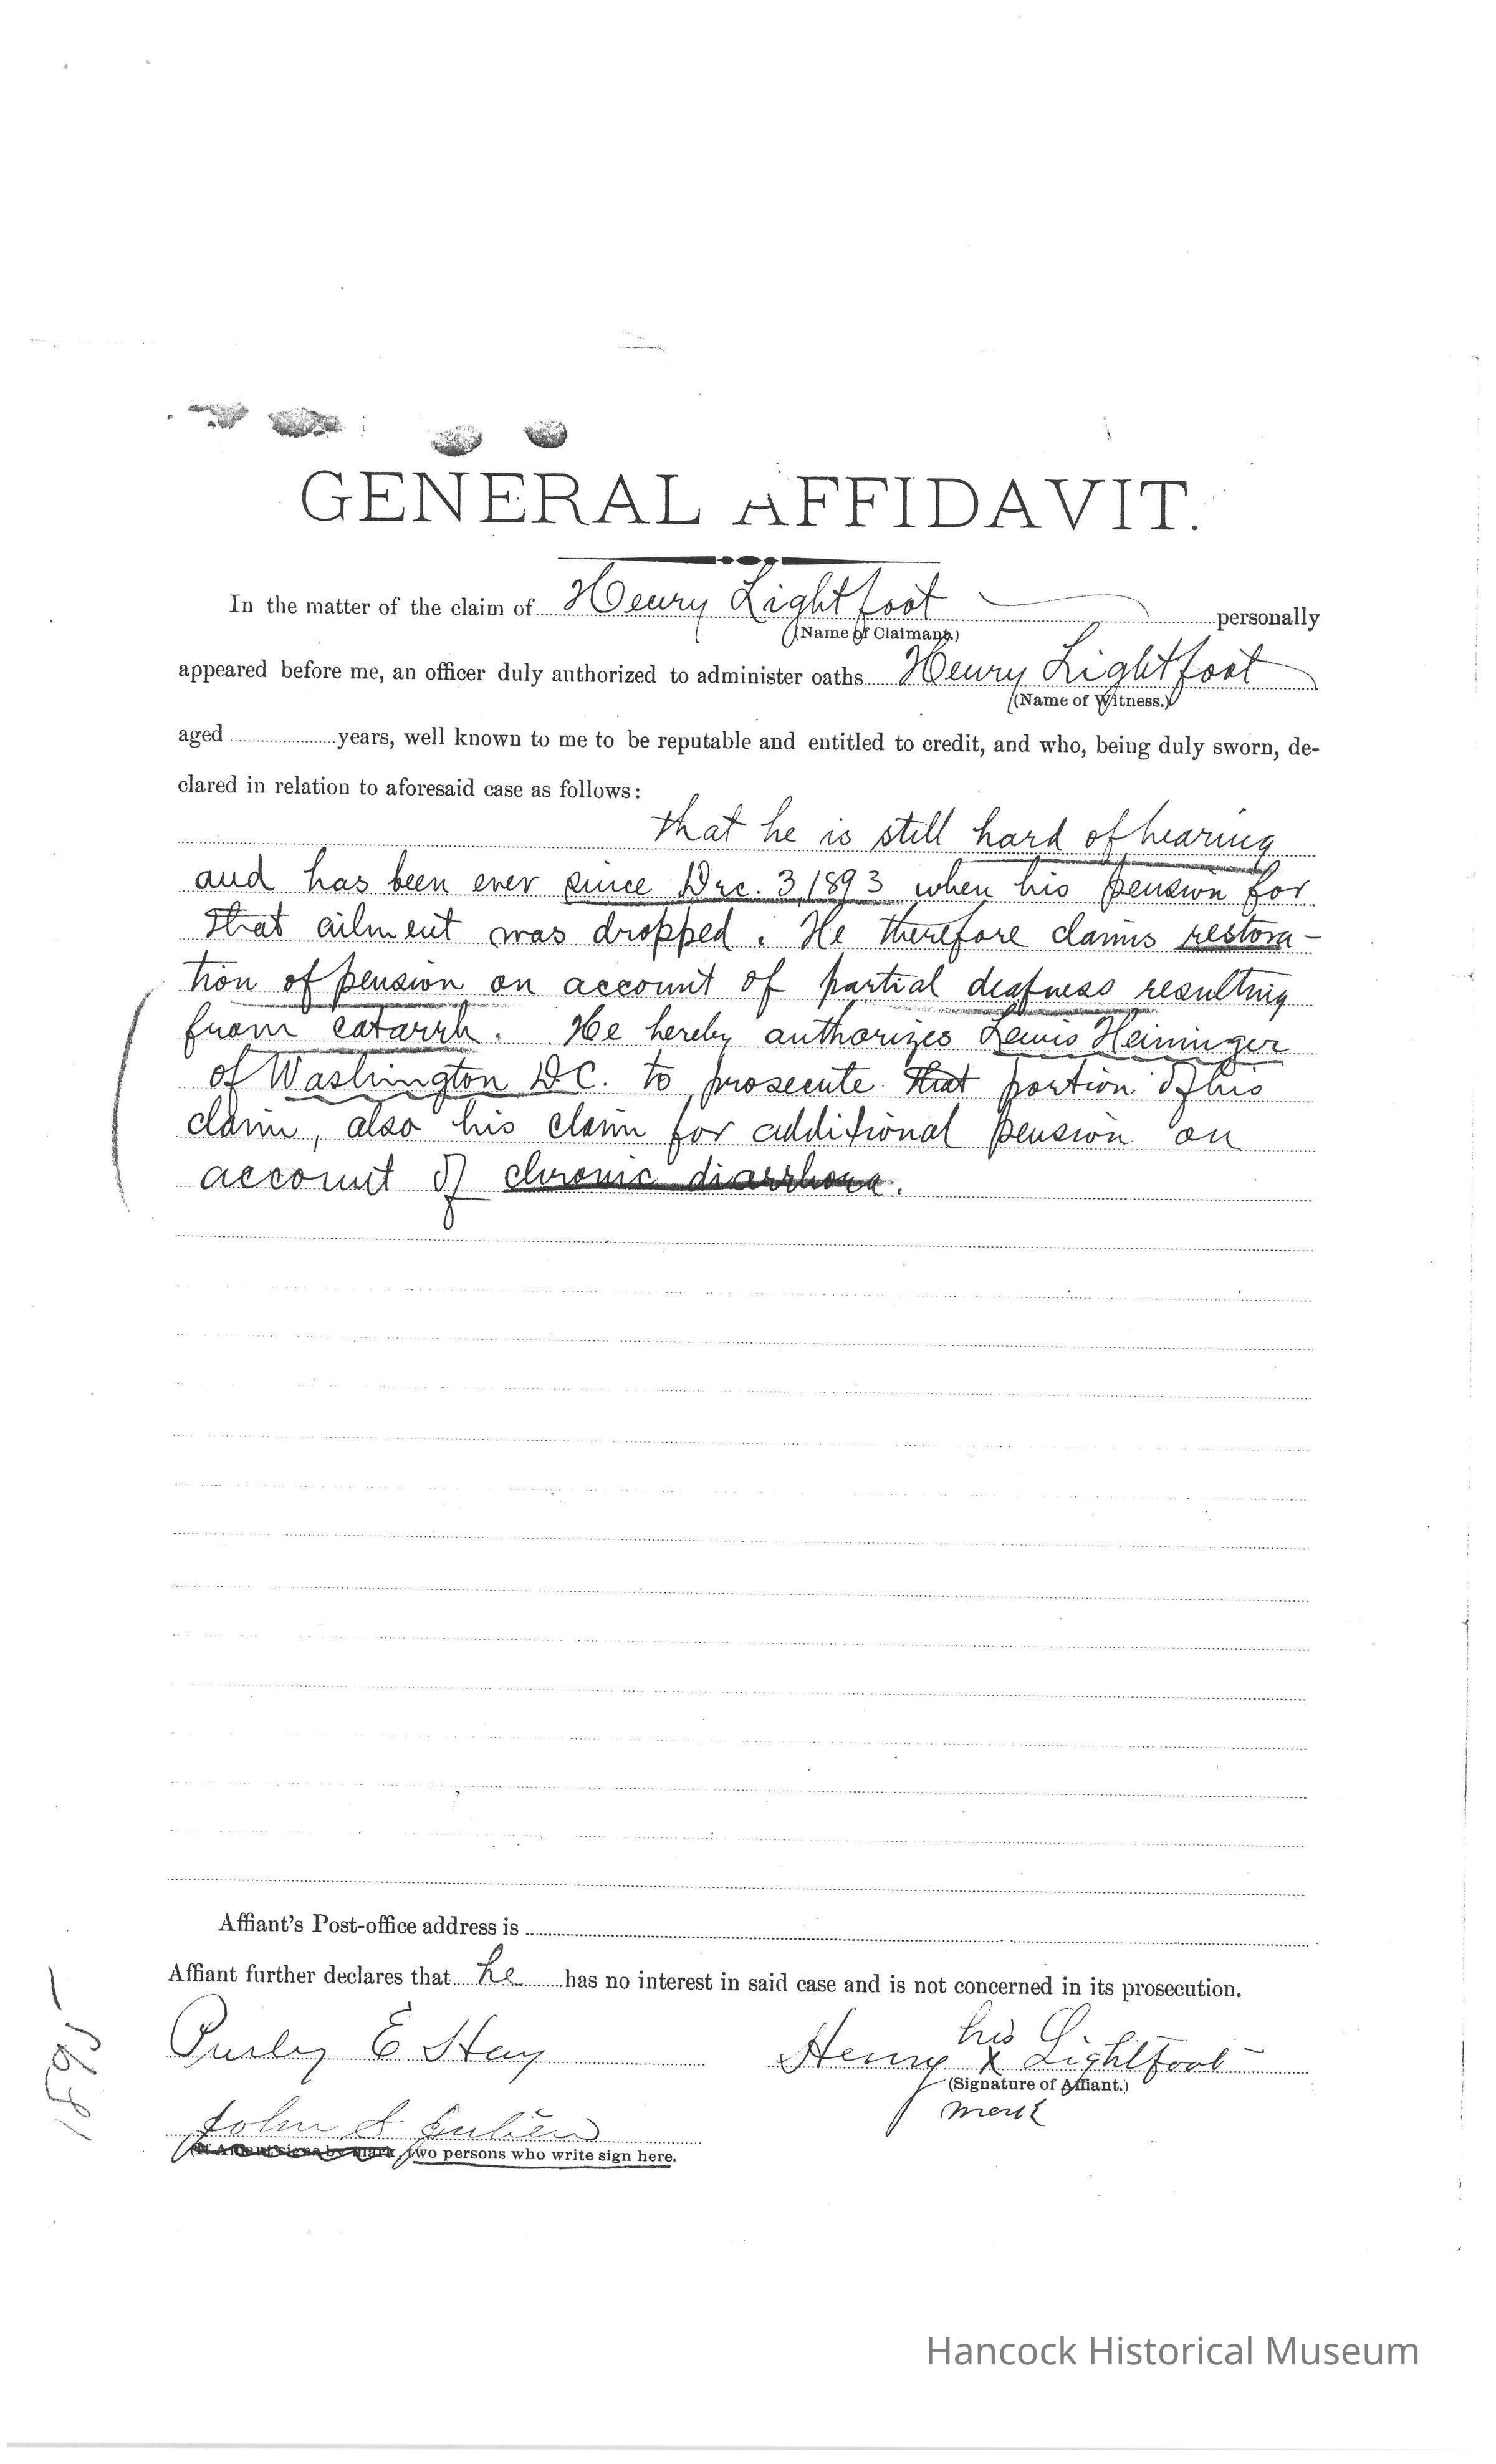 GENERAL AFFIDAVIT.
In the matter of the claim of Henry Lightfoot personally
(Name of Claimant.)
appeared before me, an officer duly authorized to administer oaths Henry Lightfoot
(Name of Witness.)
aged years, well known to me to be reputable and entitled to credit, and who, being duly sworn, de-
clared in relation to aforesaid case as follows:
that he is still hard of hearing
and has been ever since Dec. 3, 1893 when his pension for
that ailment was dropped. He therefore claims restora-
tion of pension on account of partial deafness resulting
from catarrh. He hereby authorizes Lewis Heininger
of Washington D.C. to prosecute that portion of his
claim, also his claim for additional pension on
account of chronic diarrhoea.
Affiant's Post-office address is
Affiant further declares that he has no interest in said case and is not concerned in its prosecution.
Purley E Hay
his
Henry X Lightfoot
(Signature of Affiant.)
mark
John S
(If Affiant signs by mark, two persons who write sign here.
1895
Hancock Historical Museum